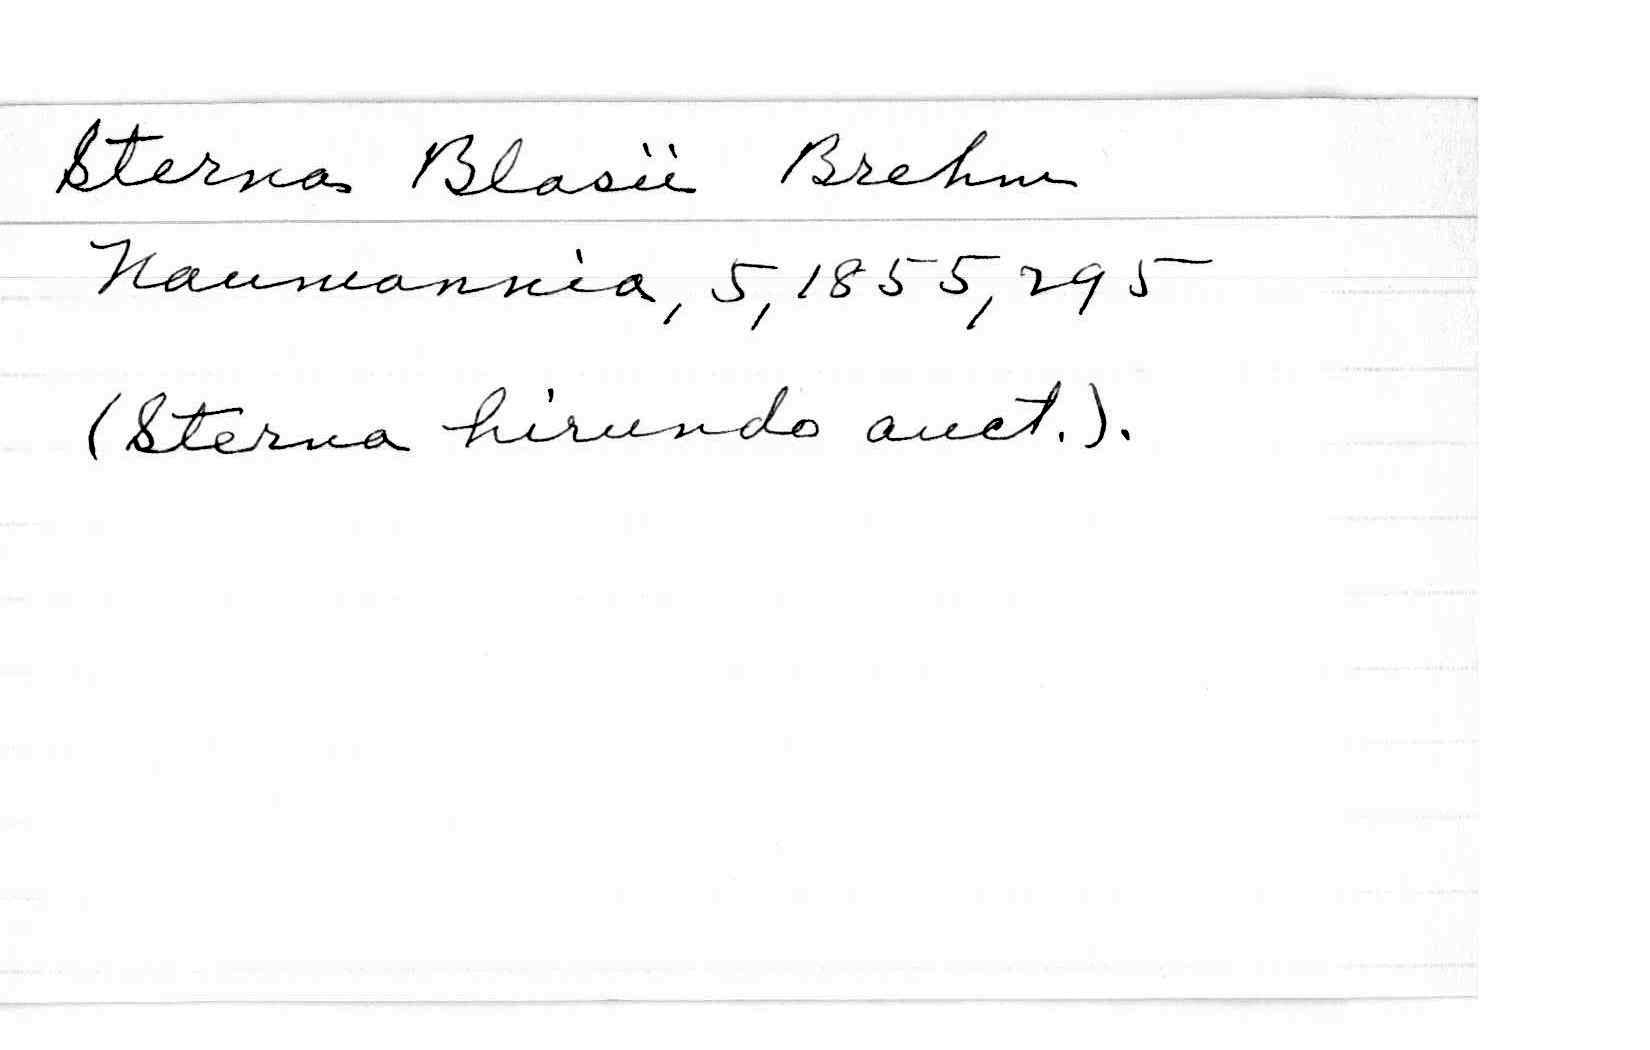 Sterna Blasii Brehm
Naumannia, 5, 1855, 295
(Sterna hirundo auct.).